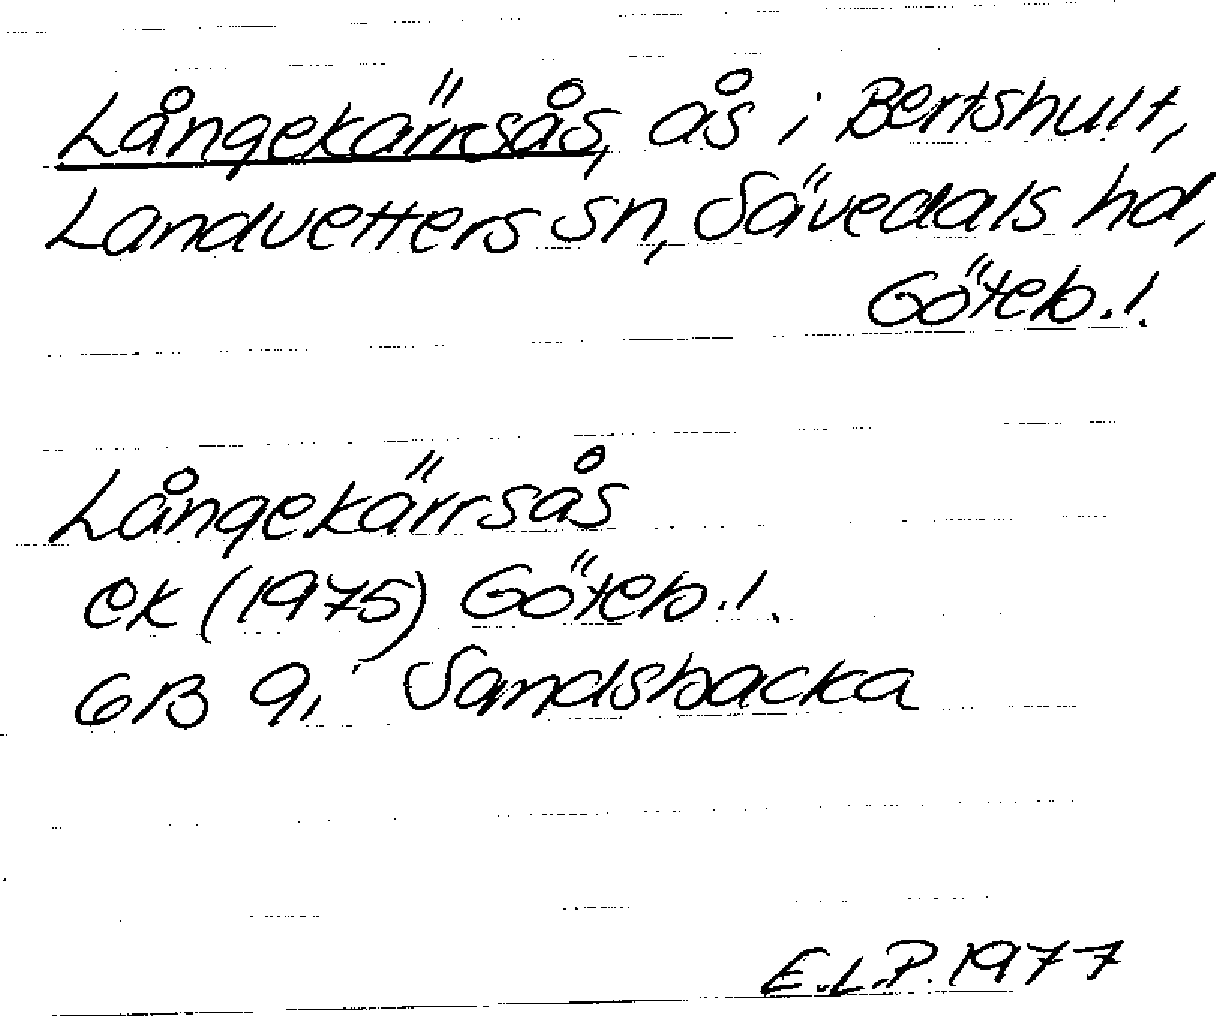 Långekärrsås, ås i Bertshult,
Landvetters sn, Sävedals hd,
Göteb. l.
Långekärrsås
ek (1975) Göteb. l.
6B 9, Sandsbacka
E.L.P. 1977